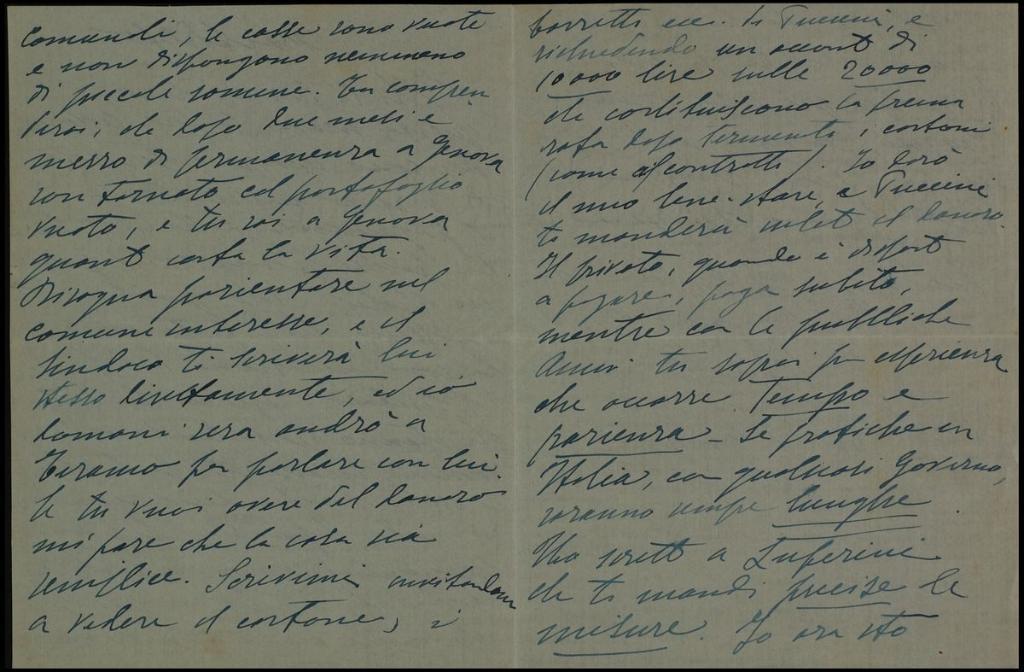 comandi, le casse sono vuote
e non dispongono nemmeno
di piccole somme. Tu compren
derai, che dopo due mesi e
mezzo di permanenza a Genova
son tornato col portafoglio
vuoto, e tu sai a Genova
quanto costa la vita.
Bisogna pazientare nel
comune interesse, e il
Sindaco ti scriverà lui
stesso direttamente, ed io
domani sera andrò a
Teramo per parlare con lui
Se tu vuoi avere del danaro
mi pare che la cosa sia
semplice. Scrivimi invitandomi
a vedere il cartone, i
bozzetti ecc. di Puccini, e
richiedendo un acconto di
10000 lire sulle 20000
che costituiscono la prima
rata dopo terminati i cartoni
(come al contratto). Io darò
il mio bene-stare, e Puccini
ti manderà subito il danaro
Il privato, quando è disposto
a pagare, paga subito,
mentre con le pubbliche
Amm tu saprai per esperienza
che occorre Tempo e
pazienza - Le pratiche in
Italia, con qualsiasi Governo,
saranno sempre lunghe
Ho scritto a
che ti mandi precise le
misure. Io ora sto